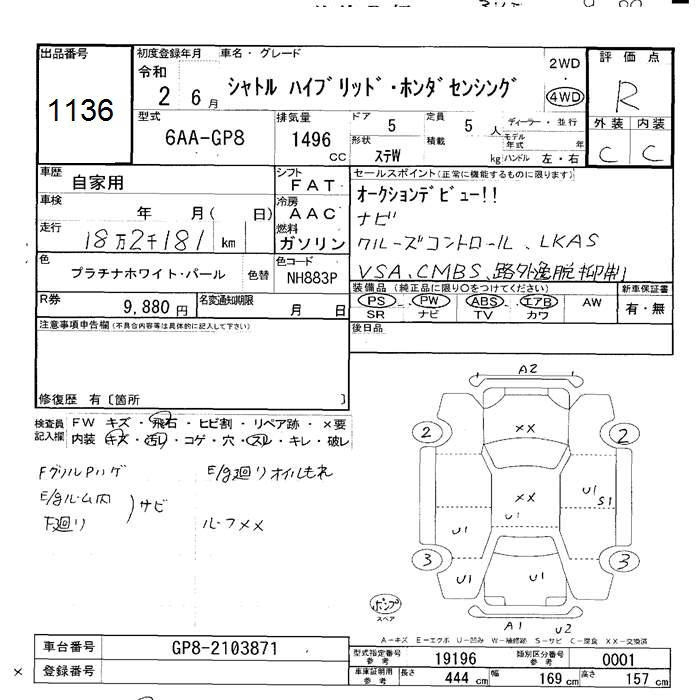 出品番号 初度登録年月 車名・グレード 評価点
1136 令和 2 6月 シャトル ハイブリッド・ホンダセンシング 2WD 4WD R
型式 排気量 ドア 定員 ディーラー・並行 外装 内装
6AA-GP8 1496 CC 5 5人 モデル年式 年
形状 ステW 積載 kg ハンドル 左・右 C C
車歴 自家用 シフト FAT セールスポイント(正常に機能するものに限ります)
車検 年 月( 日) 冷房 AAC オークションデビュー!!
ナビ
走行 18万2千181 km 燃料 ガソリン クルーズコントロール、LKAS
色 プラチナホワイト・パール 色替 色コード NH883P VSA、CMBS、路外逸脱抑制
R券 9,880円 名変通知期限 月 日 装備品(純正品に限り○をつけてください) 新車保証書
PS PW ABS エアB AW 有・無
SR ナビ TV カワ
注意事項申告欄(不具合内容等は具体的に記入して下さい) 後日品
修復歴 有〔箇所 〕
検査員記入欄 FW キズ・飛石・ヒビ割・リペア跡・×要
内装 キズ・汚レ・コゲ・穴・スレ・キレ・破レ
FグリルPハゲ E/g廻りオイルもれ
E/gルーム内 サビ
下廻り ルーフXX
A2
2 XX 2
XX U1 U1 S1
U1
3 U1 U1 3
A1 U2
スペア
A-キズ E-エクボ U-凹み W-補修跡 S-サビ C-腐食 XX-交換済
車台番号 GP8-2103871 型式指定番号 参考 19196 類別区分番号 参考 0001
× 登録番号 車庫証明用 参考 長さ 444 cm 幅 169 cm 高さ 157 cm